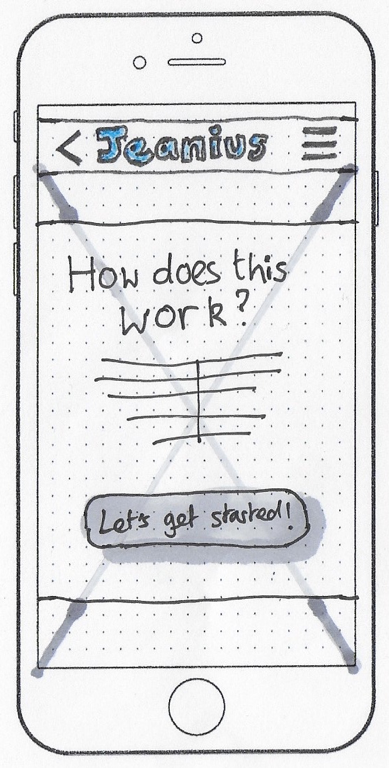 Jeanius
How does this
work?
Let's get started!